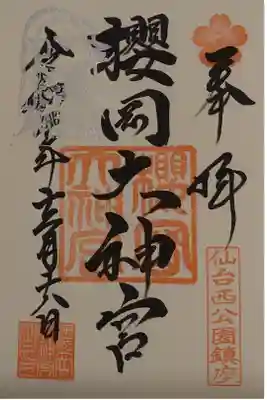 奉拝
櫻岡大神宮
仙台西公園鎮座
年十二月十六日